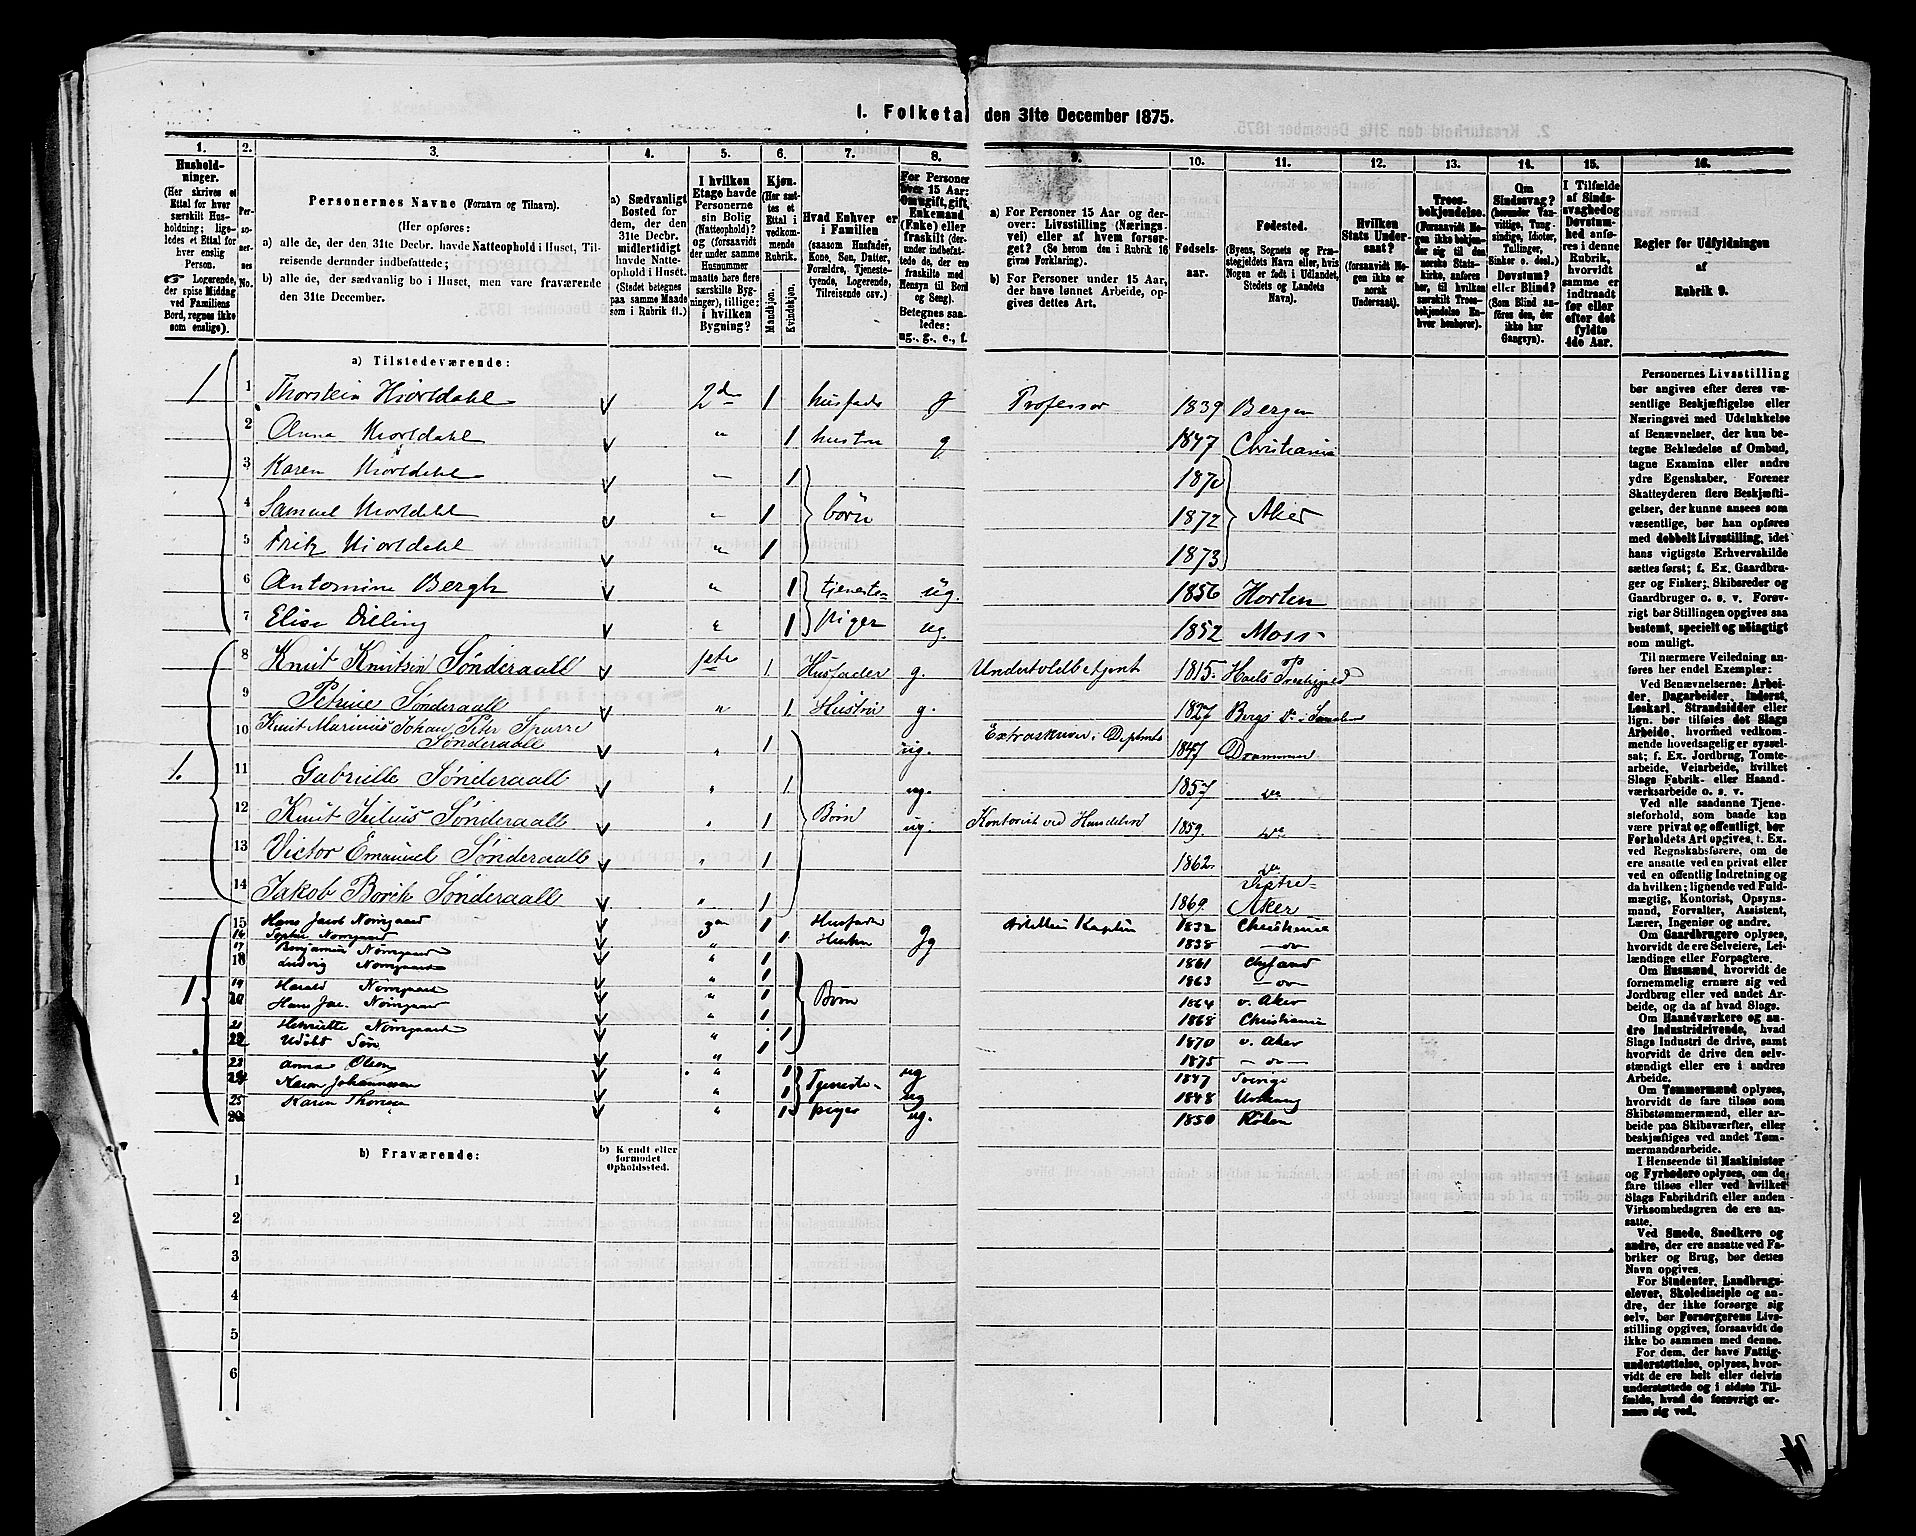 1. Folketal den 31te December 1875.
1.
Hushold-
ninger.
(Her skrives et
Ettal for hver
særskilt Hus-
holdning; lige-
ledes et Ettal for
hver enslig
Person.
Logerende,
der spise Middag
ved Familiens
Bord, regnes ikke
som enslige).
2.
Per-
soner-
nes
No.
3.
Personernes Navne (Fornavn og Tilnavn).
(Her opføres:
a) alle de, der den 31te Decbr. havde Natteophold i Huset, Til-
reisende derunder indbefattede;
b) alle de, der sædvanlig bo i Huset, men vare fraværende
den 31te December.
4.
a) Sædvanligt
Bosted for
dem, der den
31te Decbr.
midlertidigt
havde Natte-
ophold i Huset.
(Stedet betegnes
paa samme Maade
som i Rubrik 11.)
5.
I hvilken
Etage havde
Personerne
sin Bolig
(Natteophold)?
og (forsaavidt
der under samme
Husnummer
maatte høre flere
særskilte Byg-
ninger), tillige:
i hvilken
Bygning?
6.
Kjøn.
(Her sæt-
tes et
Ettal i
vedkom-
mende
Rubrik.
Mandkjøn.
Kvindekjøn.
7.
Hvad Enhver er
i Familien
(saasom Husfader,
Kone, Søn, Datter,
Forældre, Tjeneste-
tyende, Logerende,
Tilreisende osv.)
8.
For Personer
over 15 Aar:
Om ugift, gift,
Enkemand
(Enke) eller
fraskilt (der-
under indbefat-
tede de, der ere
fraskilte med
Hensyn til Bord
og Seng).
Betegnes saa-
ledes:
ug., g., e., f.
9.
a) For Personer 15 Aar og der-
over: Livsstilling (Nærings-
vei) eller af hvem forsør-
get? (Se herom den i Rubrik 16
givne Forklaring).
b) For Personer under 15 Aar,
der have lønnet Arbeide, op-
gives dettes Art.
10.
Fødsels-
aar.
11.
Fødested.
(Byens, Sognets og Præ-
stegjeldets Navn eller, hvis
Nogen er født i Udlandet,
Stedets og Landets
Navn).
12.
Hvilken
Stats Under-
saat?
(forsaavidt No-
gen ikke er
norsk
Undersaat).
13.
Troes-
bekjendelse.
(Forsaavidt No-
gen ikke bekjen-
der sig til den
norske Stats-
kirke, anføres
her, til hvilken
særskilt Troes-
bekjendelse En-
hver henhører).
14.
Om
Sindssvag?
(herunder Van-
vittige, Tung-
sindige, Idioter,
Tullinger,
Sinker o. desl.)
Døvstum?
eller Blind?
(Som Blind an-
føres den, der
ikke har
Gangsyn).
15.
I Tilfælde
af Sinds-
svaghed og
Døvstum-
hed anfø-
res i denne
Rubrik,
hvorvidt
samme er
indtraadt
før eller
efter det
fyldte
4de Aar.
16.
Regler for Udfyldningen
af
Rubrik 9.
a) Tilstedeværende:
1 1 Thorstein Hiortdahl 2d 1 husfader g Professor 1839 Bergen
2 Anna Hiortdahl " 1 hustru g 1847 Christiania
3 Karen Hiortdahl " 1 1870
4 Samuel Hiortdahl " 1 børn 1872 Aker
5 Fritz Hiortdahl " 1 1873
6 Antomine Bergh " 1 tjeneste- ug. 1856 Horten
7 Elise Dilling " 1 piger ug. 1852 Moss
8 Knut Knutsen Sønderaall 1ste 1 Husfader g. Undertoldbetjent 1815. Hols Præstegjeld
9 Petrine Sønderaall " 1 Hustru g. 1827 Bergs
10 Knut Marinius Johan Peter Sparre
Sønderaall " 1 ug. Extraskriver i Deptmt 1847 Drammen
1. 11 Gabrielle Sønderaall " 1 ug. 1857 do
12 Knut Julius Sønderaall " 1 Børn ug. Kontorist ved Handelen 1859. do
13 Victor Emanuel Sønderaall " 1 1862. do
14 Jakob Borch Sønderaall " 1 1869. Vestre
Aker
15 Hans Jacob Nørregaard 3die 1 Husfader g Artilleri Kaptein 1832 Christiania
16 Sophie Nørregaard " 1 Hustru g 1838 do
17 Benjamin Nørregaard " 1 1861
18 Ludvig Nørregaard " 1 1863 do
1 19 Harald Nørregaard " 1 Børn 1864 v. Aker
20 Hans Jac. Nørregaard " 1 1868 Christiania
21 Henriette Nørregaard " 1 1870 v. Aker
22 Udøbt Søn " 1 1875 do
23 Anna Olsen " 1 Tjeneste- ug 1847 Sverige
24 Karen Johannessen " 1 ug 1848
25 Karen Thoresen " 1 piger ug. 1850 Røken
b) Fraværende:
b) Kjendt eller
formodet
Opholdssted.
1
2
3
4
5
6
Personernes Livsstilling
bør angives efter deres væ-
sentlige Beskjæftigelse eller
Næringsvei med Udelukkelse
af Benævnelser, der kun be-
tegne Beklædelse af Ombud,
tagne Examina eller andre
ydre Egenskaber. Forener
Skatteyderen flere Beskjæfti-
gelser, der kunne ansees som
væsentlige, bør han opføres
med dobbelt Livsstilling, idet
hans vigtigste Erhvervskilde
sættes først; f. Ex. Gaardbru-
ger og Fisker; Skibsreder og
Gaardbruger o. s. v. Forøv-
rigt bør Stillingen opgives saa
bestemt, specielt og nøiagtigt
som muligt.
Til nærmere Veiledning an-
føres her endel Exempler:
Ved Benævnelserne: Arbei-
der, Dagarbeider, Inderst,
Løskarl, Strandsidder eller
lign. bør tilføies det Slags
Arbeide, hvormed vedkom-
mende hovedsagelig er syssel-
sat; f. Ex. Jordbrug, Tomte-
arbeide, Veiarbeide, hvilket
Slags Fabrik- eller Haand-
værksarbeide o. s. v.
Ved alle saadanne Tjene-
steforhold, som baade kan
være privat og offentligt, bør
Forholdets Art opgives, t. Ex.
ved Regnskabsførere, om de
ere ansatte ved en privat eller
ved en offentlig Indretning og
da hvilken; lignende ved Fuld-
mægtig, Kontorist, Opsyns-
mand, Forvalter, Assistent,
Lærer, Ingeniør og andre.
Om Gaardbrugere oplyses,
hvorvidt de ere Selveiere, Lei-
lændinge eller Forpagtere.
Om Husmænd, hvorvidt de
fornemmelig ernære sig ved
Jordbrug eller ved andet Ar-
beide, og da af hvad Slags.
Om Haandværkere og an-
dre Industridrivende, hvad
Slags Industri de drive, samt
hvorvidt de drive den selv-
stændigt eller ere i andres
Arbeide.
Om Tømmermænd oplyses,
hvorvidt de fare tilsøs som
Skibstømmermænd, eller ar-
beide paa Skibsværfter, eller
beskjæftiges ved andet Tøm-
mermandsarbeide.
I Henseende til Maskinister
og Fyrbødere oplyses, om de
fare tilsøs eller ved hvilket
Slags Fabrikdrift eller anden
Virksomhedsgren de ere an-
satte.
Ved Smede, Snedkere og
andre, der ere ansatte ved Fa-
briker og Brug, bør dettes
Navn opgives.
For Studenter, Landbrugs-
elever, Skoledisciple og an-
dre, der ikke forsørge sig
selv, bør Forsørgerens Livs-
stilling opgives, forsaavidt de
ikke bo sammen med denne.
For dem, der have Fattig-
understøttelse, oplyses, hvor-
vidt de ere helt eller delvis
understøttede og i sidste Til-
fælde, hvad de forøvrigt er-
nære sig ved.